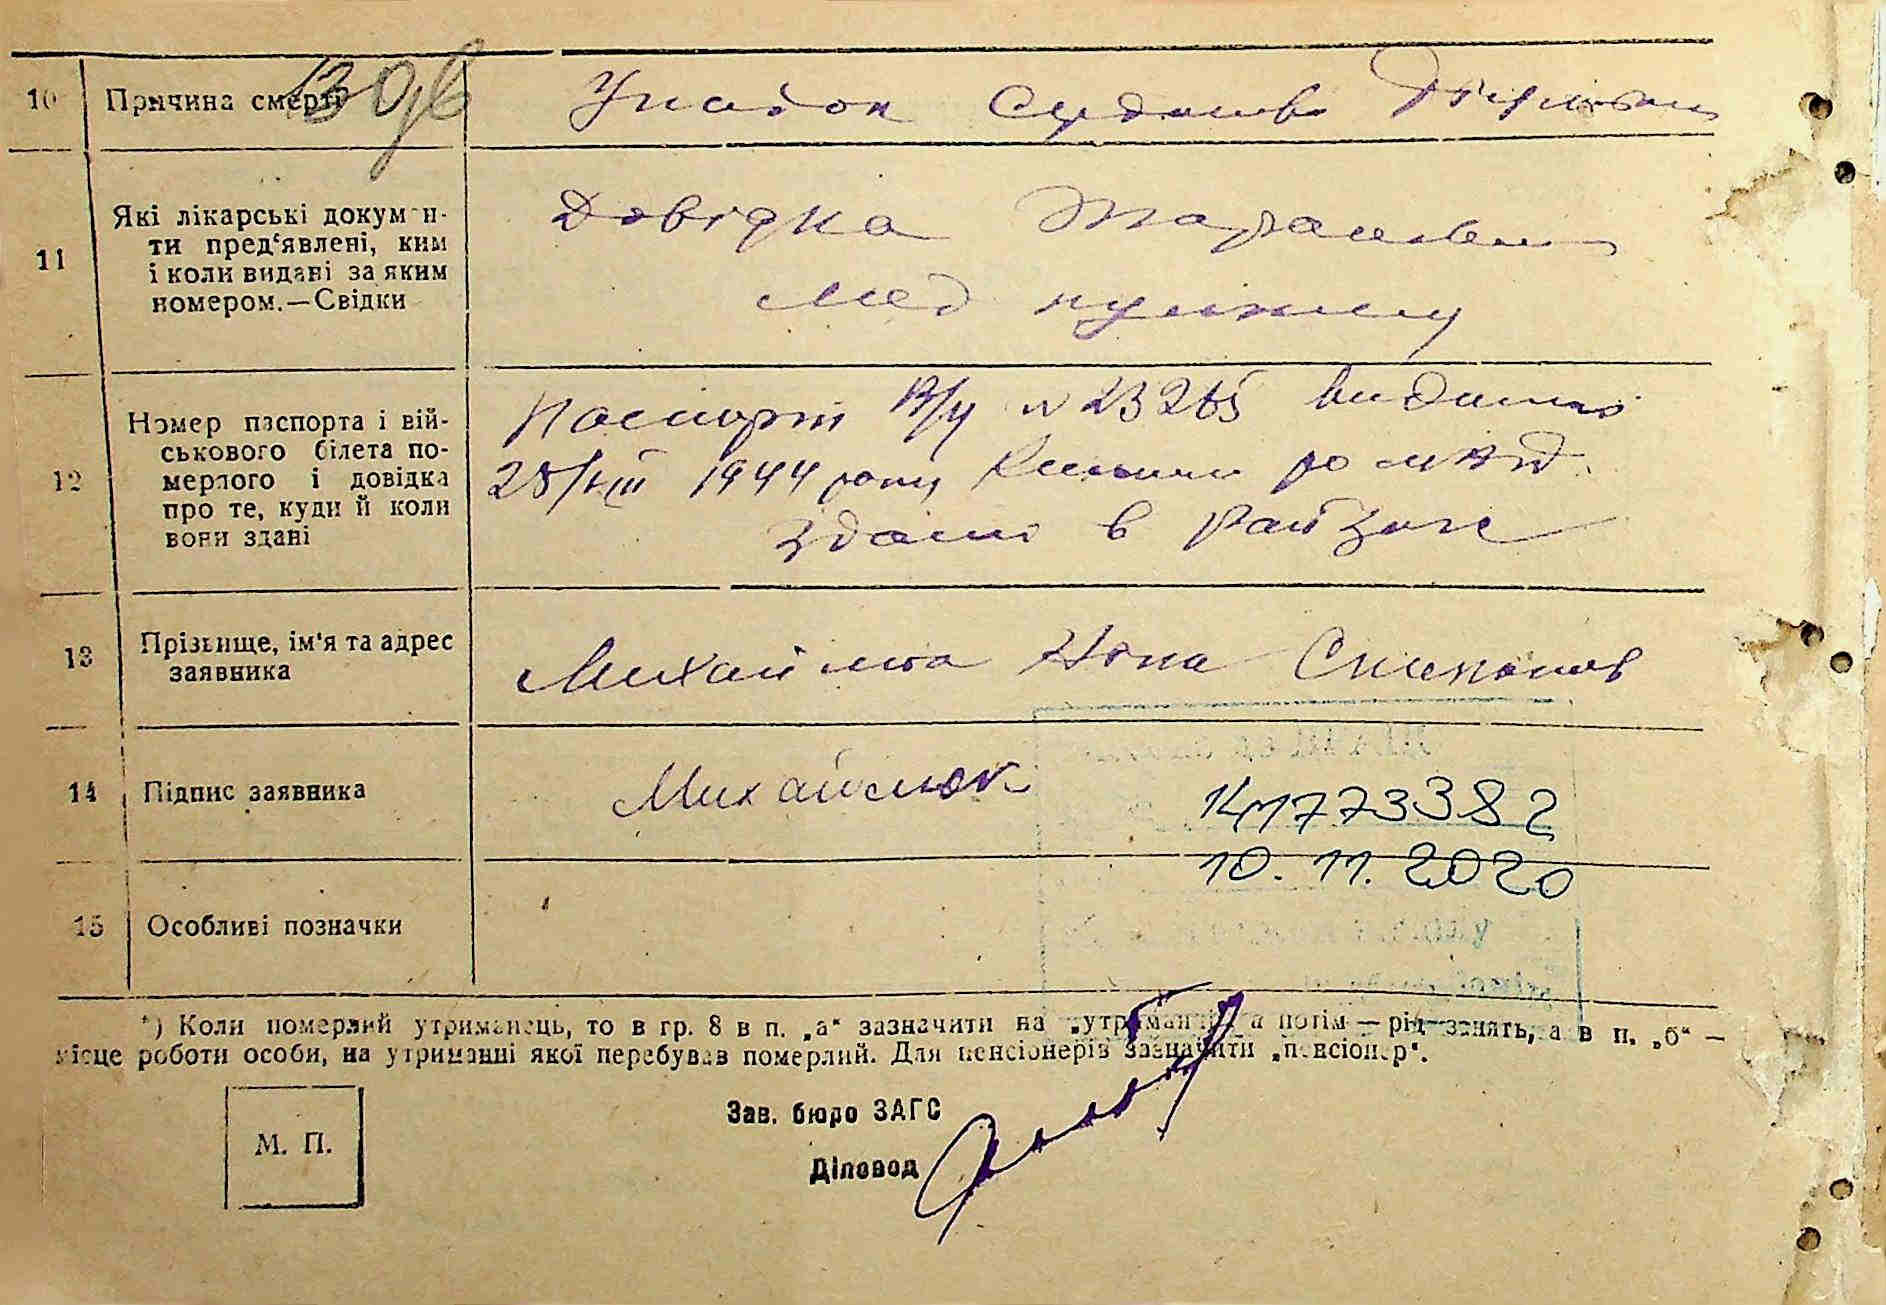 130 дв
10 Причина смерті Упадок Сердечно Діяльност
11 Які лікарські докумен-
ти пред‘явлені, ким
і коли видані за яким
номером.—Свідки
Довідка
мед пункту
12 Номер паспорта і вій-
ськового білета по-
мерлого і довідка
про те, куди й коли
вони здані
Паспорт № 23265 видано
28/VIII 1944 року РО МВД.
Здано в Рай Загс
13 Прізвище, ім‘я та адрес
заявника
Михайлюк Степанов
14 Підпис заявника Михайлюк
141773382
10.11.2020
15 Особливі позначки
*) Коли померлий утриманець, то в гр. 8 в п. „а“ зазначити на „утриманні“, а потім — рід занять, а в п. „б“ —
місце роботи особи, на утриманні якої перебував померлий. Для пенсіонерів зазначити „пенсіонер“.
М. П.
Зав. бюро ЗАГС
Діловод